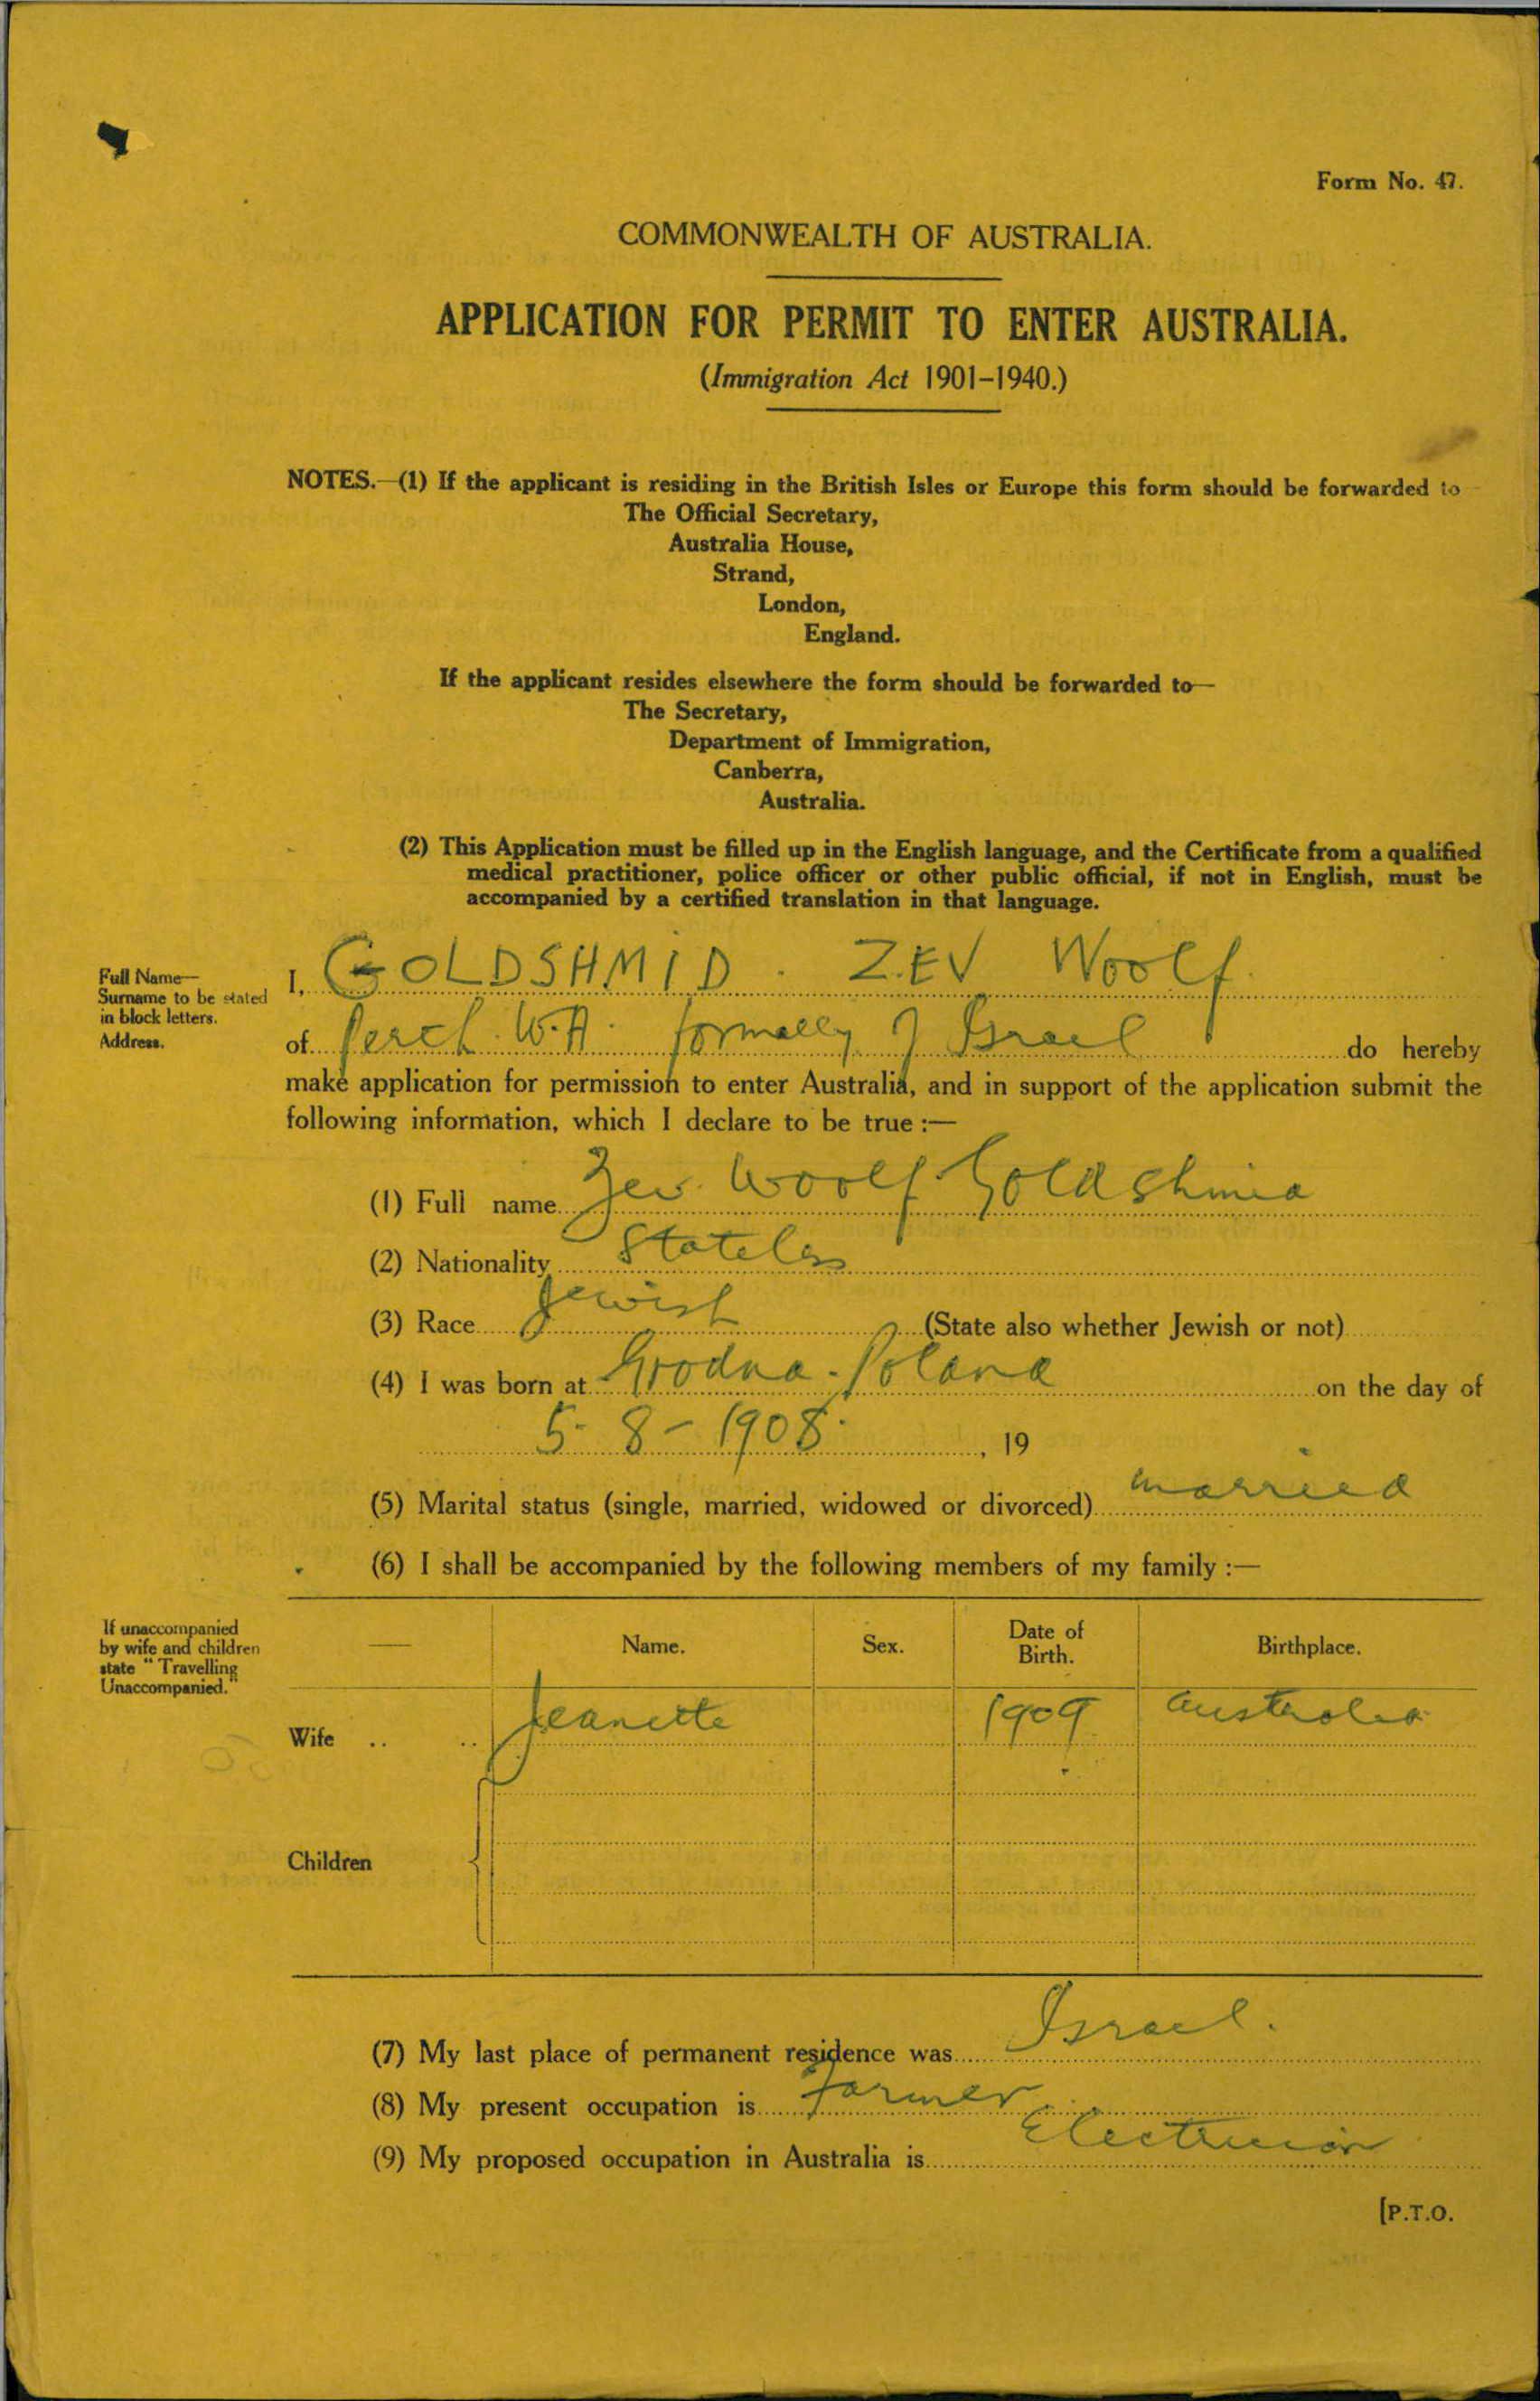 Form No. 47.
COMMONWEALTH OF AUSTRALIA.
APPLICATION FOR PERMIT TO ENTER AUSTRALIA.
(Immigration Act 1901-1940.)
NOTES.—(1) If the applicant is residing in the British Isles or Europe this form should be forwarded to
The Official Secretary,
Australia House,
Strand,
London,
England.
If the applicant resides elsewhere the form should be forwarded to—
The Secretary,
Department of Immigration,
Canberra,
Australia.
(2) This Application must be filled up in the English language, and the Certificate from a qualified
medical practitioner, police officer or other public official, if not in English, must be
accompanied by a certified translation in that language.
Full Name—
Surname to be stated
in block letters.
Address.
I, GOLDSHMID. ZEV Woolf.
of Perth. W.A. formally of Israel do hereby
make application for permission to enter Australia, and in support of the application submit the
following information, which I declare to be true :—
(1) Full name Zev. Woolf. Goldshmid
(2) Nationality Stateless
(3) Race Jewish (State also whether Jewish or not)
(4) I was born at Grodna - Poland on the day of
5 - 8 - 1908 , 19
(5) Marital status (single, married, widowed or divorced) married
(6) I shall be accompanied by the following members of my family :—
If unaccompanied
by wife and children
state "Travelling
Unaccompanied."
— Name. Sex. Date of Birth. Birthplace.
Wife .. .. Jeanette 1909 Australia
Children
(7) My last place of permanent residence was Israel.
(8) My present occupation is farmer
(9) My proposed occupation in Australia is Electrician
[P.T.O.